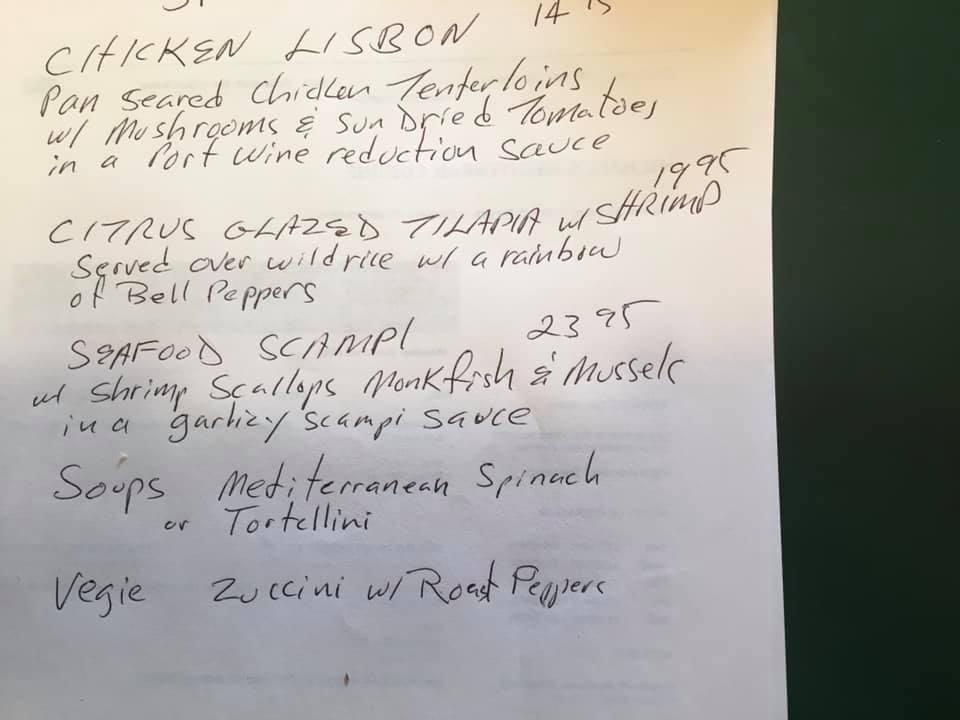 CHICKEN LISBON
Pan Seared Chicken Tenterloins
w/ Mushrooms & Sun Dried Tomatoes
in a Port Wine reduction sauce
19 95
CITRUS GLAZED TILAPIA w/ SHRIMP
Served over wild rice w/ a rainbow
of Bell Peppers
SEAFOOD SCAMPI 23 95
w/ Shrimp Scallops Monkfish & Mussels
in a garlicy scampi sauce
Soups Mediterranean Spinach
or Tortellini
Vegie Zuccini w/ Roast Peppers